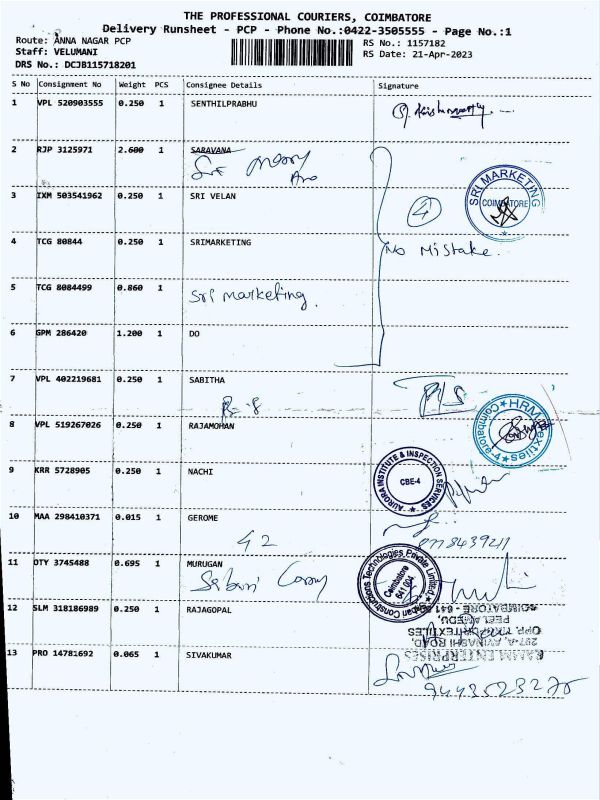 THE PROFESSIONAL COURIERS, COIMBATORE
Delivery Runsheet - PCP - Phone No.:0422-3505555 - Page No.:1
Route: ANNA NAGAR PCP
RS No.: 1157182
Staff: VELUMANI
RS Date: 21-Apr-2023
DRS No.: DCJB115718201
S No Consignment No Weight PCS Consignee Details Signature
1 VPL 520903555 0.250 1 SENTHILPRABHU
2 RJP 3125971 2.600 1 SARAVANA
3 IXM 503541962 0.250 1 SRI VELAN
4
SRI MARKETING
COIMBATORE
4 TCG 80844 0.250 1 SRIMARKETING
No Mistake.
5 TCG 8084499 0.860 1
Sri marketing.
6 GPM 286420 1.200 1 DO
7 VPL 402219681 0.250 1 SABITHA
P/S
8 VPL 519267026 0.250 1 RAJAMOHAN
HRM Textiles
Coimbatore-4
9 KRR 5728905 0.250 1 NACHI
AURORA INSTITUTE & INSPECTION SERVICES
CBE-4
10 MAA 298410371 0.015 1 GEROME
42
11 DTY 3745488 0.695 1 MURUGAN
Constructions Technologies Private Limited
Coimbatore
641 004
12 SLM 318186989 0.250 1 RAJAGOPAL
RAMM ENTERPRISES
297-A, AVINASHI ROAD,
PEELAMEDU,
COIMBATORE - 641
13 PRO 14781692 0.065 1 SIVAKUMAR